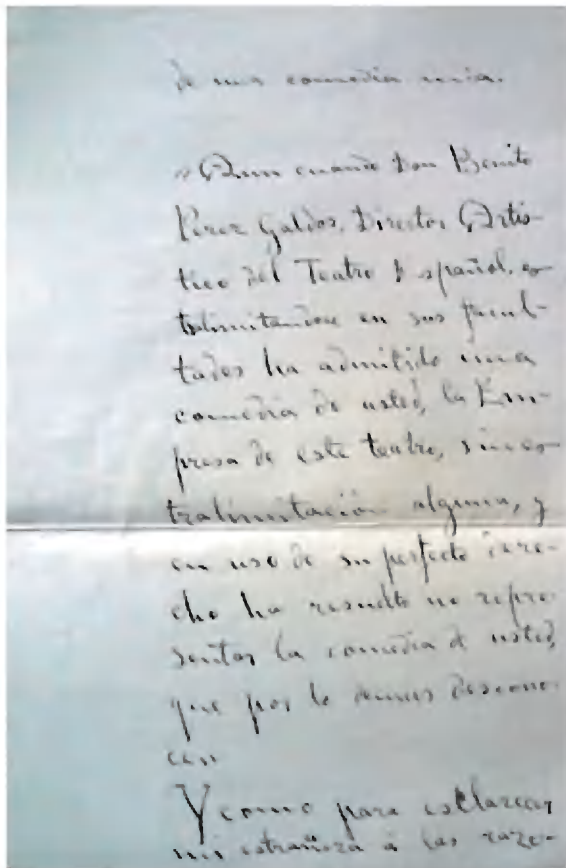 de una comedia mia.
"Aun cuando Don Benito
Pérez Galdos, Director Artis-
tico del Teatro Español, es-
tralimitandose en sus facul-
tades ha admitido una
comedia de usted, la Em-
presa de este teatro, sin es-
tralimitación alguna, y
en uso de su perfecto dere-
cho ha resuelto no repre-
sentar la comedia de usted,
que por lo demas descono-
cen
Y como para esclarecer
mi estrañeza á las razo-